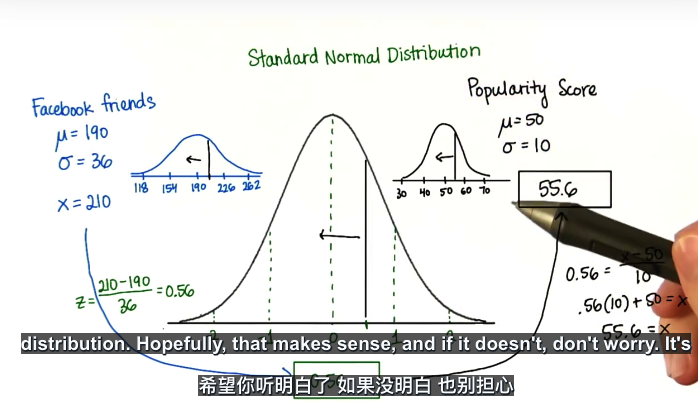 Standard Normal Distribution
Facebook friends
μ = 190
σ = 36
x = 210
118 154 190 226 262
z = 210-190 / 36 = 0.56
Popularity Score
μ = 50
σ = 10
30 40 50 60 70
55.6
0.56 = x-50 / 10
.56(10) + 50 = x
55.6 = x
distribution. Hopefully, that makes sense, and if it doesn't, don't worry. It's
希望你听明白了 如果没明白 也别担心